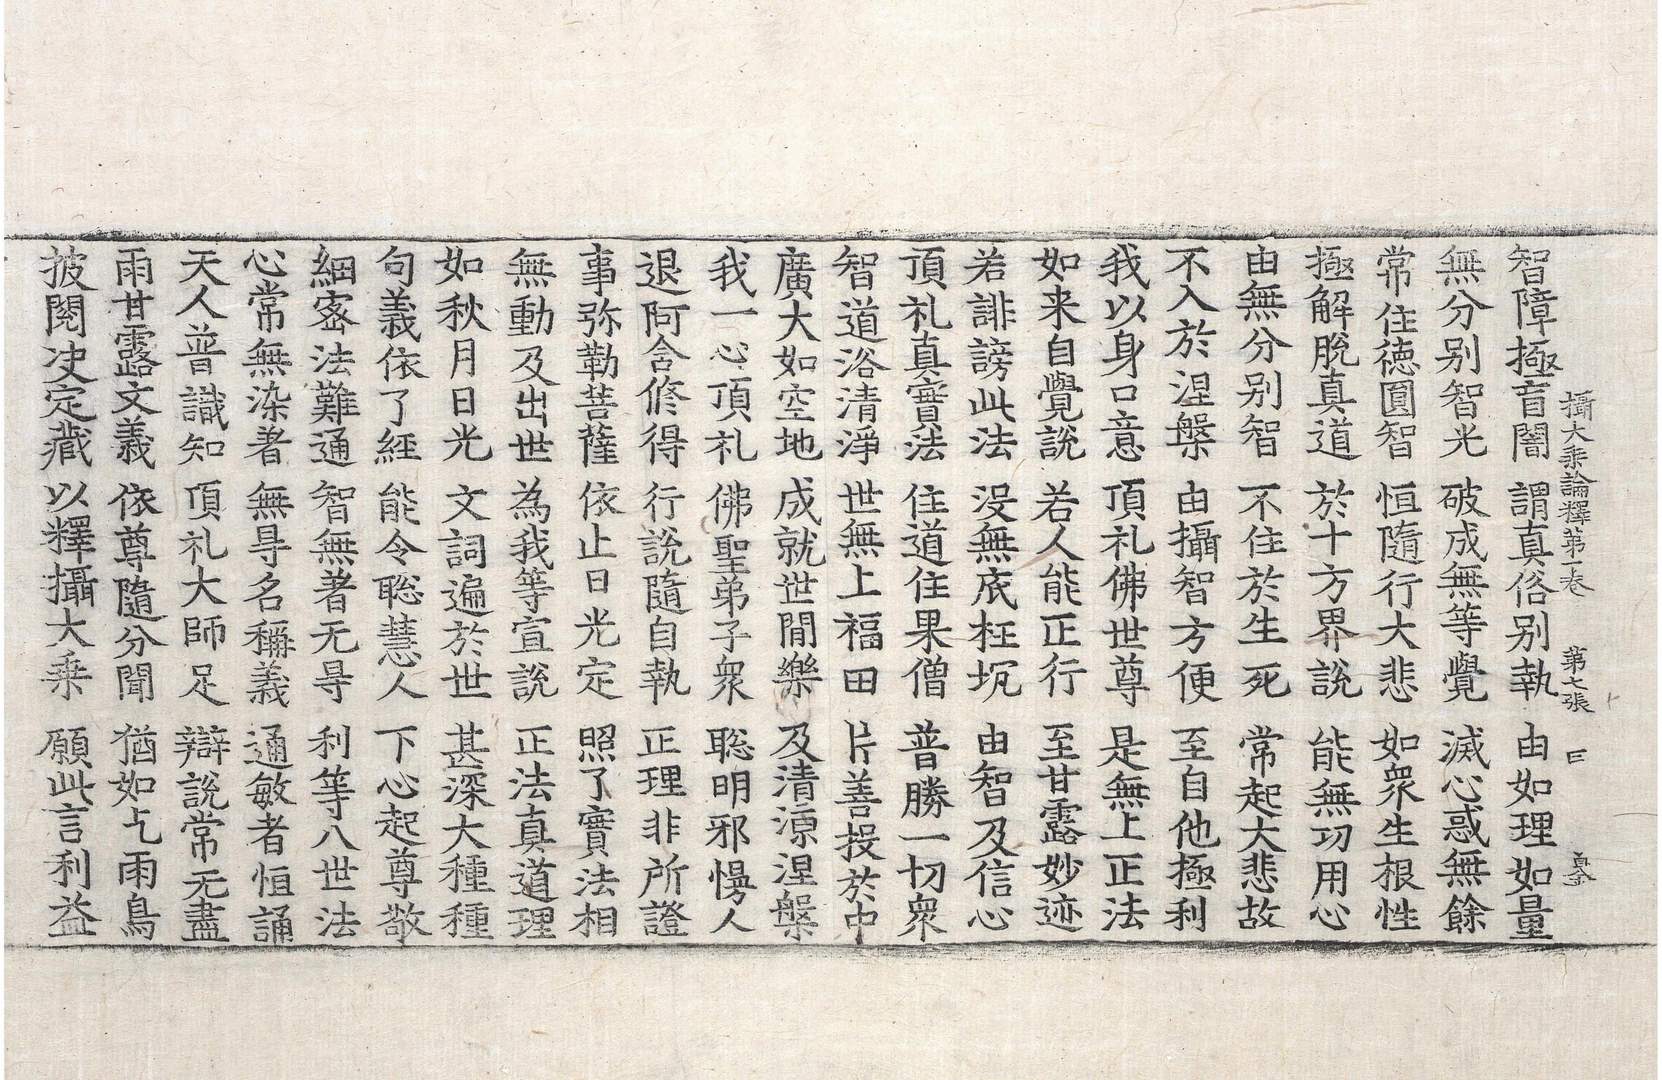 攝大乘論釋第一卷 第七張 曰
智障極盲闇 謂真俗别執 由如理如量
無分别智光 破成無等覺 滅心惑無餘
常住德圓智 恒隨行大悲 如衆生根性
極解脫真道 於十方界說 能無功用心
由無分别智 不住於生死 常起大悲故
不入於涅槃 由攝智方便 至自他極利
我以身口意 頂礼佛世尊 是無上正法
如来自覺說 若人能正行 至甘露妙迹
若誹謗此法 没無底枉坑 由智及信心
頂礼真實法 住道住果僧 普勝一切衆
智道浴清淨 世無上福田 片善投於中
廣大如空地 成就世閒樂 及清涼涅槃
我一心頂礼 佛聖弟子衆 聡明邪慢人
退阿含修得 行說隨自執 正理非所證
事弥勒菩薩 依止日光定 照了實法相
無動及出世 為我等宣說 正法真道理
如秋月日光 文詞遍於世 甚深大種種
句義依了經 能令聡慧人 下心起尊敬
細密法難通 智無著无㝵 利等八世法
心常無染著 無㝵名稱義 通敏者恒誦
天人普識知 頂礼大師足 辯說常无盡
雨甘露文義 依尊隨分聞 猶如乞雨鳥
披閱決定藏 以釋攝大乘 願此言利益